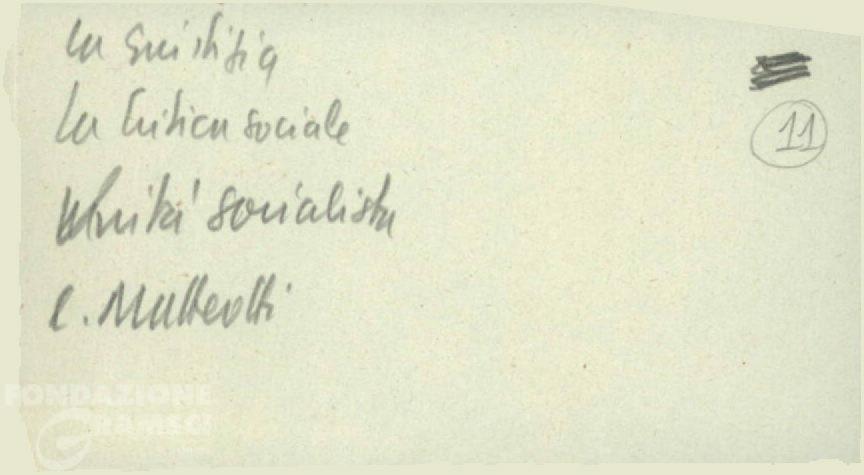 La Giustizia
La Critica sociale
11
Unità socialista
C. Matteotti
FONDAZIONE
GRAMSCI